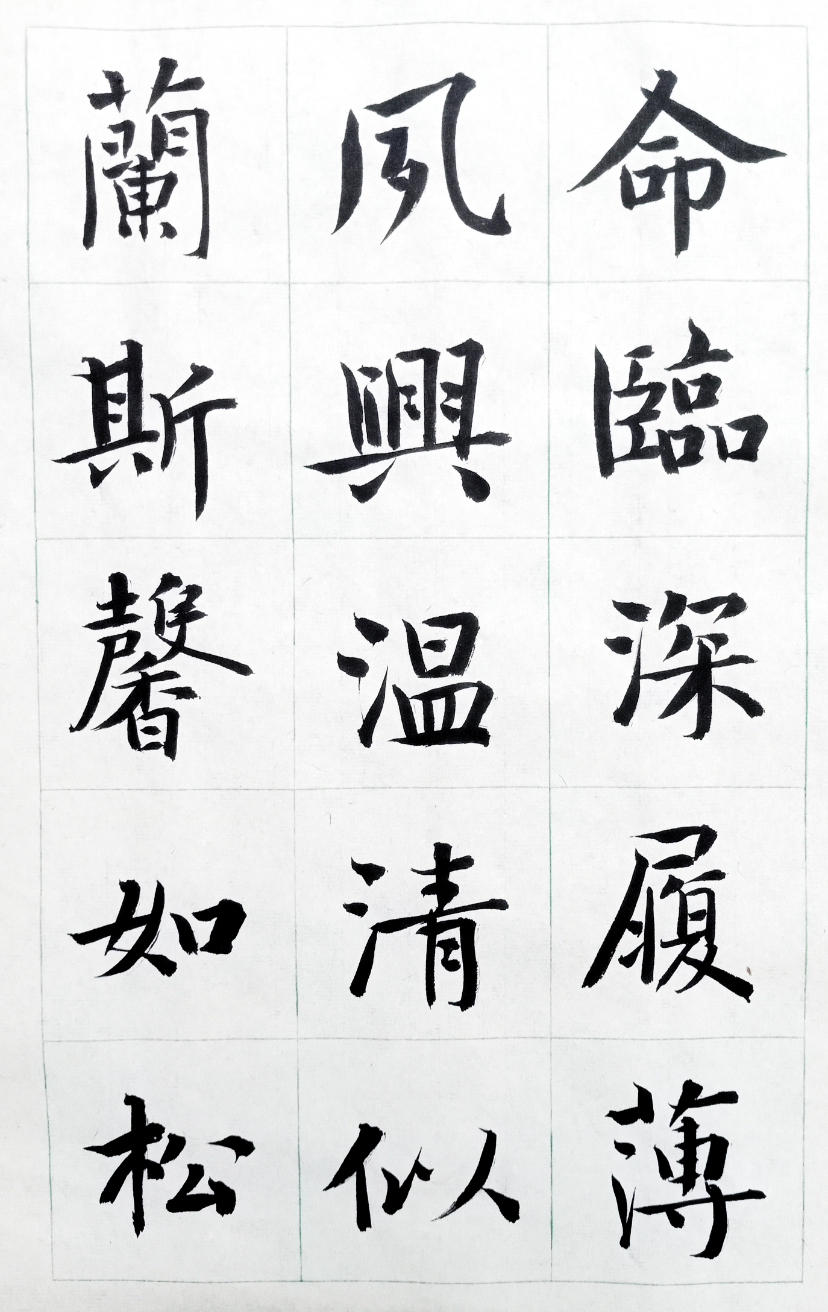 命臨深履薄
夙興温清似
蘭斯馨如松